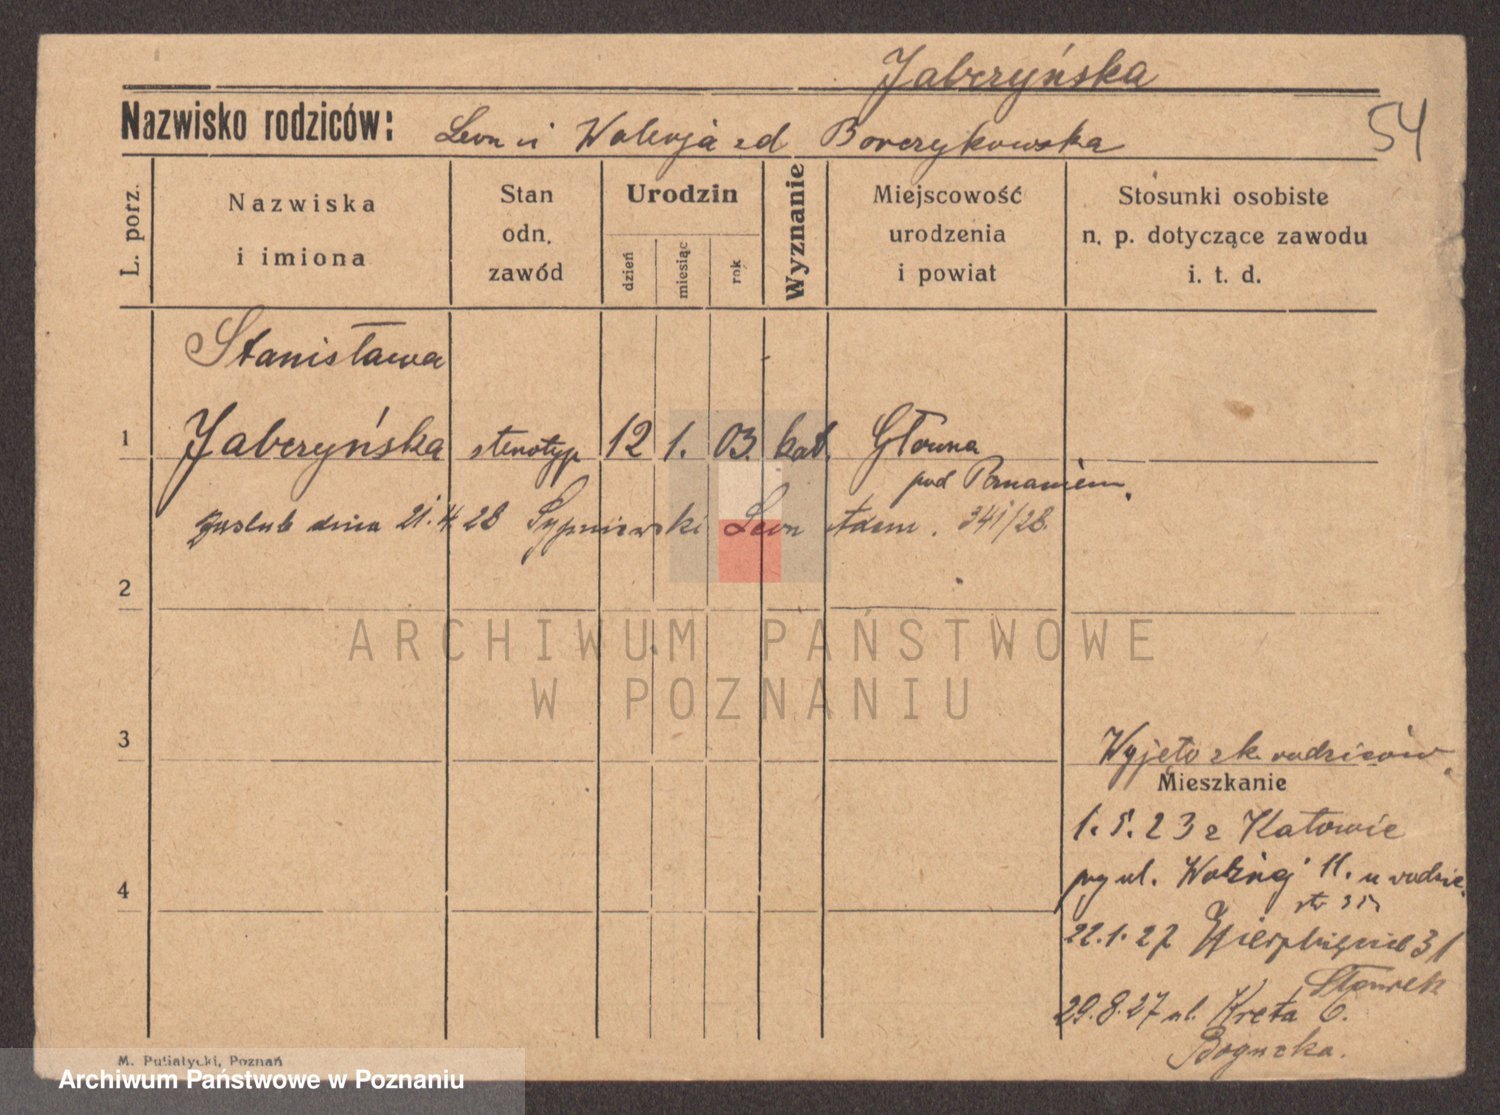 Jabczyńska
54
Nazwisko rodziców: Leon i Walerja zd Borczykowska
L. porz.
Nazwiska
i imiona
Stan
odn.
zawód
Urodzin
dzień
miesiąc
rok
Wyznanie
Miejscowość
urodzenia
i powiat
Stosunki osobiste
n. p. dotyczące zawodu
i. t. d.
Stanisława
1 Jabczyńska stenotyp 12 1. 03. kat. Główna
pod Poznaniem.
zaślub dnia 21.4.28 Sypniewski Leon Adam. 341/28.
2
ARCHIWUM PAŃSTWOWE
W POZNANIU
3
Wyjęto z k. rodziców.
Mieszkanie
1.5.23 z Katowic
przy ul. Woźnej 11. u rodzic.
4
22.1.27 Wierzbięcice 31
29.8.27 ul. Kręta 6.
M. Putiatycki, Poznań
Archiwum Państwowe w Poznaniu